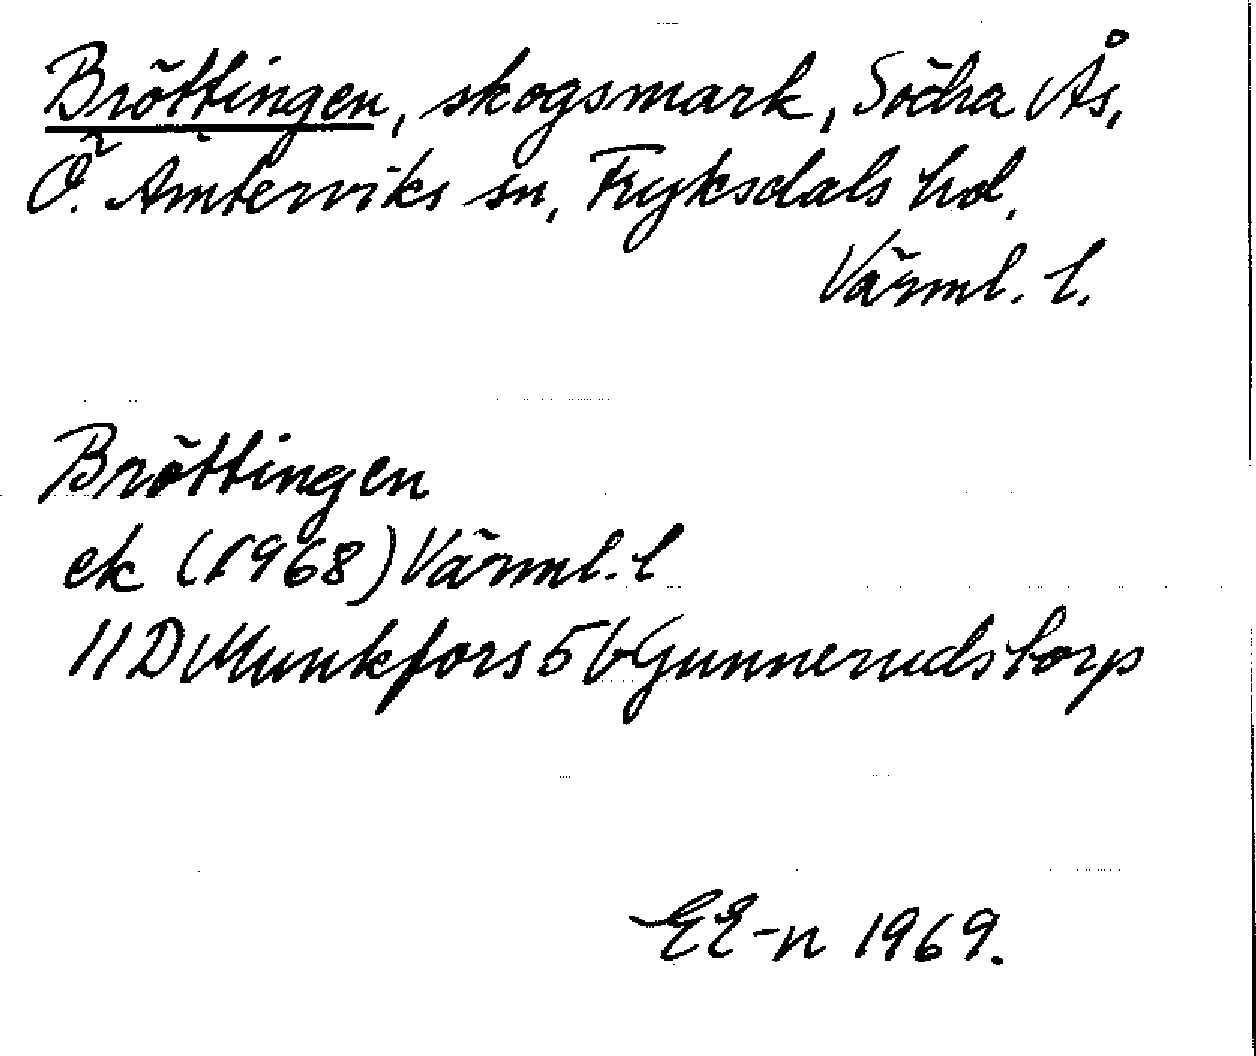 Bröttingen, skogsmark, Södra Ås,
Ö. Ämterviks sn, Fryksdals hd,
Värml. l.
Bröttingen
ek (1968) Värml. l
11D Munkfors 5 b Gunnerudstorp
EE-n 1969.